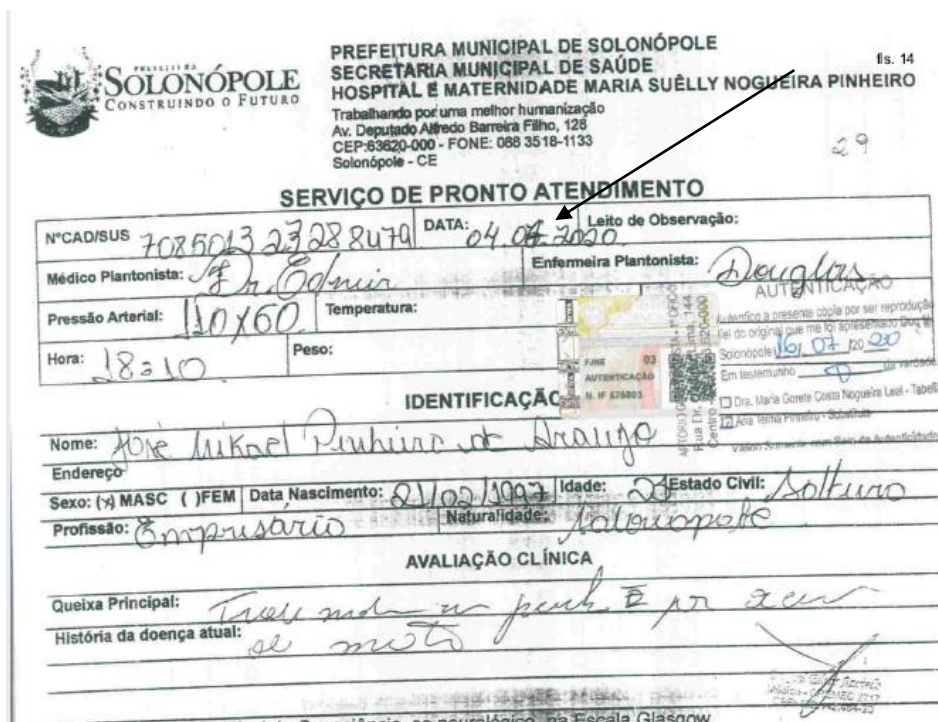 PREFEITURA
SOLONÓPOLE
CONSTRUINDO O FUTURO
PREFEITURA MUNICIPAL DE SOLONÓPOLE
SECRETARIA MUNICIPAL DE SAÚDE
HOSPITAL E MATERNIDADE MARIA SUÊLLY NOGUEIRA PINHEIRO
fls. 14
Trabalhando por uma melhor humanização
Av. Deputado Alfredo Barreira Filho, 128
CEP:63620-000 - FONE: 088 3518-1133
Solonópole - CE
29
SERVIÇO DE PRONTO ATENDIMENTO
NºCAD/SUS 7085013 23288479 DATA: 04. 2020 Leito de Observação:
Médico Plantonista: Dr. Edmir Enfermeira Plantonista: Douglas
Pressão Arterial: 110x60 Temperatura:
Hora: 18:10 Peso:
AUTENTICAÇÃO
Autentico a presente cópia por ser reprodução
fiel do original que me foi apresentado Dou fé
Solonópole 16, 07 /20 20
Em testemunho da verdade
Dra. Maria Gorete Costa Nogueira Leal - Tabeliã
Válido Somente com Selo de Autenticidade
FJNE 03
AUTENTICAÇÃO
N. IF 575803
IDENTIFICAÇÃO
Nome: José Mikael Pinheiro de Araujo
Endereço
Sexo: (x) MASC ( )FEM Data Nascimento: 21/02/1997 Idade: 23 Estado Civil: Solteiro
Profissão: Empresário Naturalidade: Solonopole
AVALIAÇÃO CLÍNICA
Queixa Principal:
História da doença atual: de moto
na Escala Glasgow